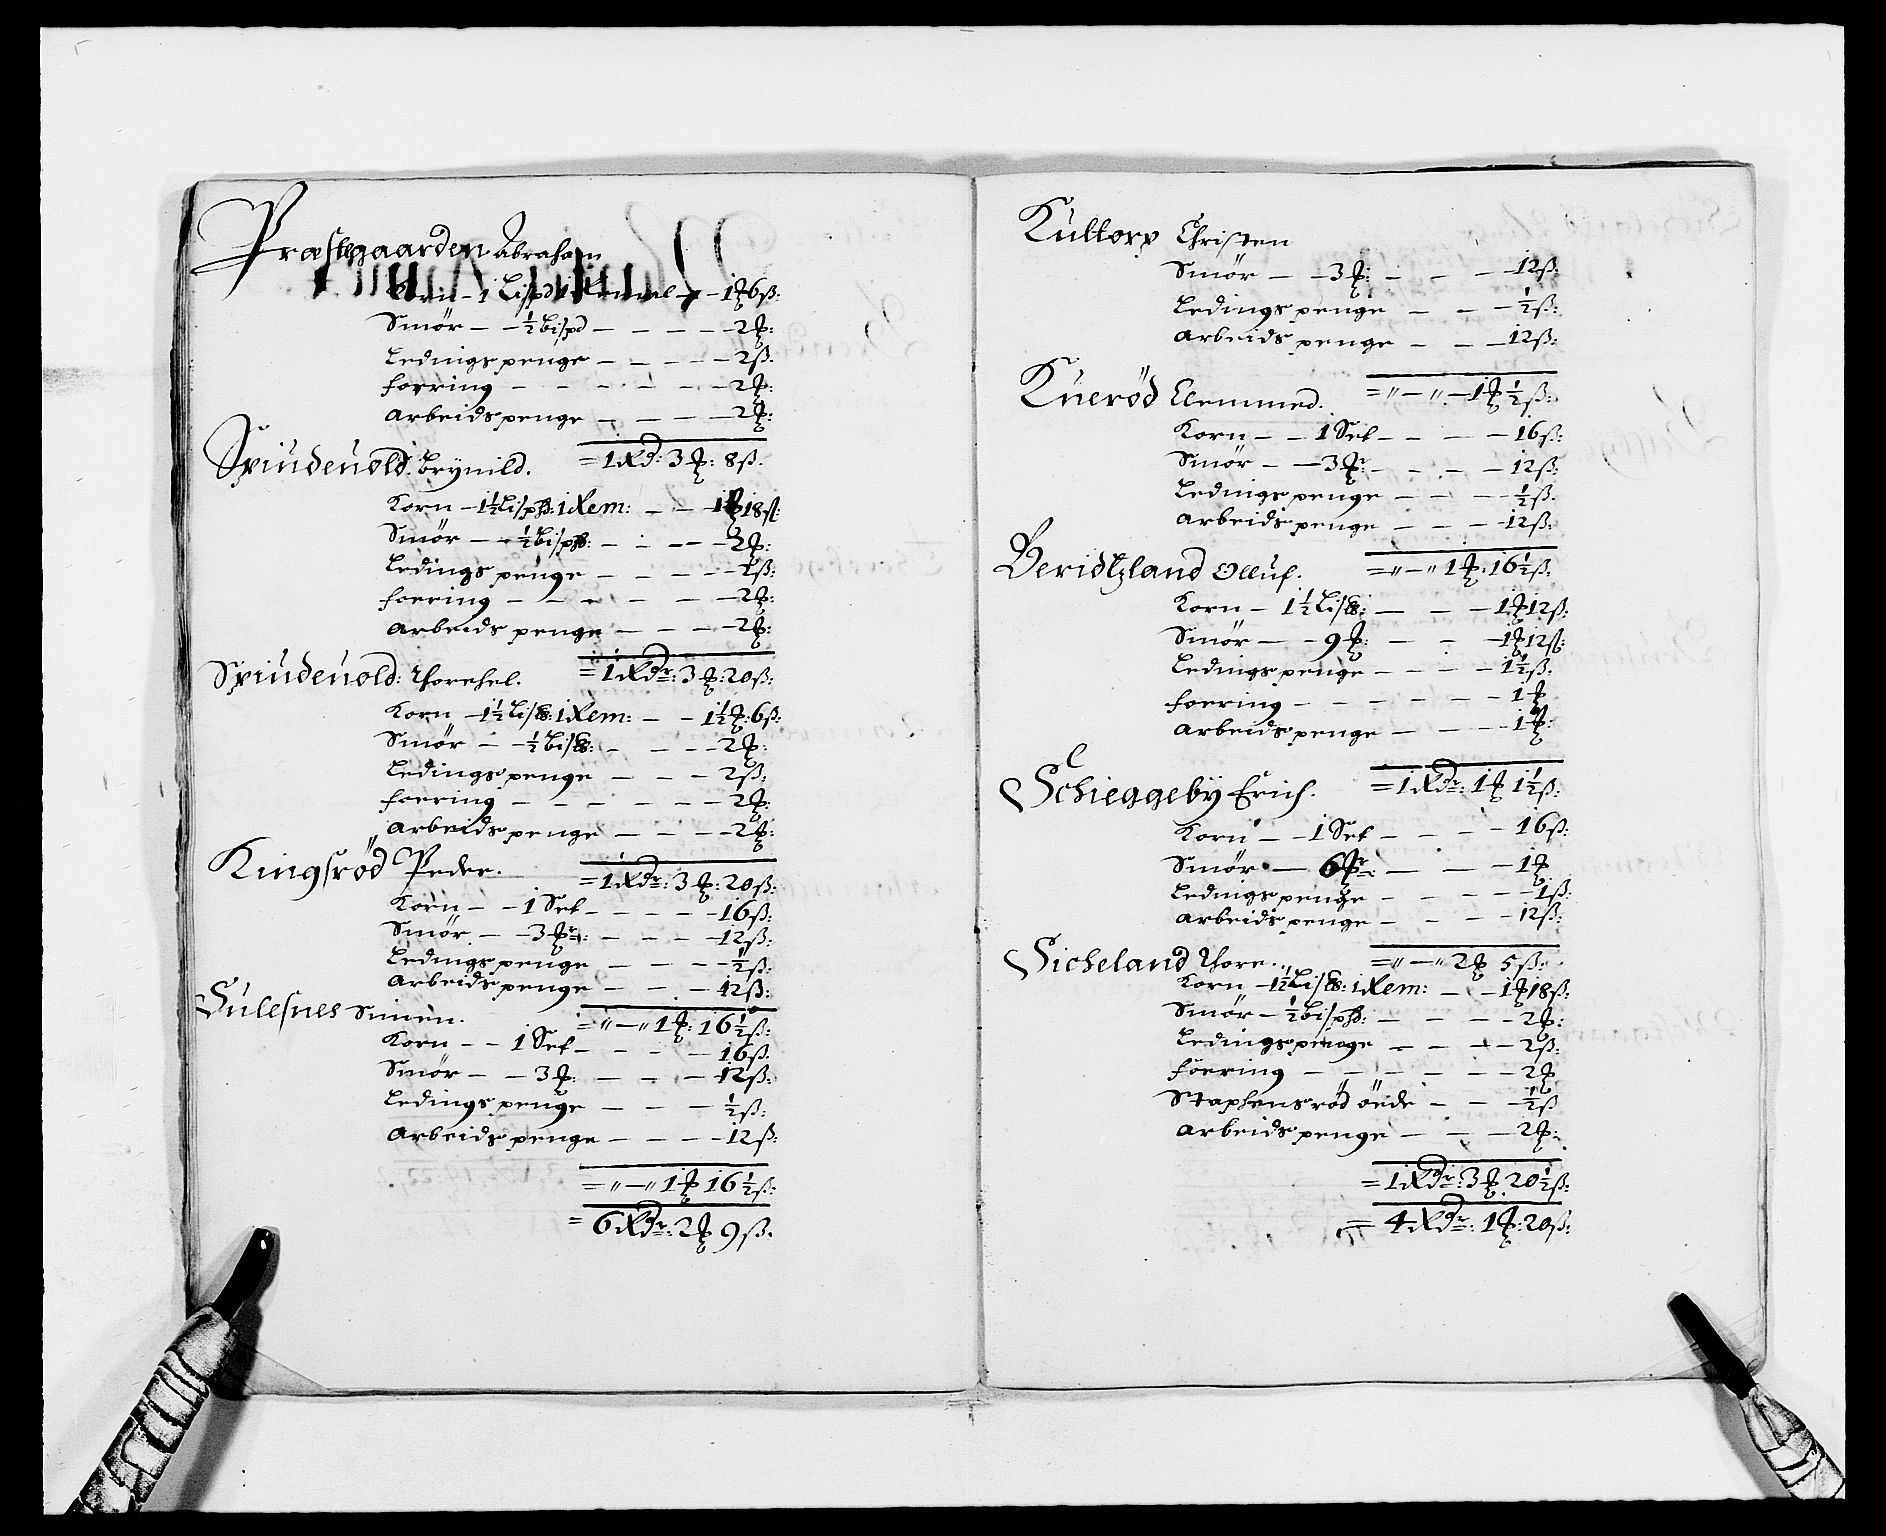 Præstegaarden Abraham
Korn – 1 Lispd – – 1 ℔ 6 ß:
Smör – – ½ Bispd – – – – – 2 ℔:
Ledings penge – – – – – 2 ß.
forring – – – – – – – 2 ℔:
Arbeids penge – – – – – 2 ℔:
= 1 Rd: 3 ℔: 8 ß.
Spindeuold: Brynild.
Korn – 1½ Lispd: 1 Rem: – – 1 ℔ 18 ß:
Smör – – ½ Bispd: – – – – 2 ℔:
Ledings penge – – – – – 2 ß:
forring – – – – – – – 2 ℔:
Arbeids penge – – – – – 2 ℔:
= 1 Rdr: 3 ℔: 20 ß:
Spindeuold: Thorchel.
Korn – 1½ Lispd: 1 Rem: – – 1½ ℔: 6 ß:
Smör – – ½ Bispd: – – – – 2 ℔:
Ledings penge – – – – 2 ß:
forring – – – – – – 2 ℔:
Arbeids penge – – – – 2 ℔:
= 1 Rdr: 3 ℔: 20 ß:
Kingsröd Peder.
Korn – – 1 Set – – – – – 16 ß:
Smör – – 3 ℔r: – – – – 12 ß:
Ledings penge – – – – ½ ß:
Arbeids penge – – – 12 ß:
= " – " 1 ℔: 16½ ß:
Sulesnes Simen.
Korn – – 1 Set – – – – 16 ß.
Smör – – 3 ℔: – – – 12 ß:
Ledings penge – – – – ½ ß:
Arbeids penge – – – – 12 ß:
= " – " 1 ℔ 16½ ß:
= 6 Rdr: 2 ℔ 9 ß.
Kultorp Christen
Smör – – 3 ℔: – – – – 12 ß:
Ledings penge – – – ½ ß:
Arbeids penge – – – 12 ß:
= " – " – 1 ℔ ½ ß:
Kneröd Clemmed.
Korn – – 1 Set – – – – 16 ß:
Smör – – 3 ℔r – – – – 12 ß:
Ledings penge – – – – ½ ß.
Arbeids penge – – – – 12 ß:
= " – " 1 ℔: 16½ ß:
Beridtzland Olluf.
Korn – 1½ Lispd: – – – 1 ℔ 12 ß:
Smör – – 9 ℔: – – – 1 ℔ 12 ß:
Ledings penge – – – – 1½ ß:
forring – – – – – – 1 ℔
Arbeids penge – – – – 1 ℔:
= 1 Rdr: 1 ℔ 1½ ß:
Schieggeby Erich.
Korn – – 1 Set – – – – 16 ß:
Smör – 6 ℔r: – – – 1 ℔
Ledings penge – – – – 1 ß:
Arbeids penge – – – – 12 ß:
= " – " 2 ℔ 5 ß:
Sicheland Thore.
Korn – 1½ Lispd: 1 Rem: – – 1 ℔ 18 ß:
Smör – ½ Bispd: – – – – 2 ℔:
Ledings penge – – – – 2 ß:
forring – – – – – – 2 ℔
Staphensröd öede – – – ½ ß
Arbeids penge – – – 2 ℔:
= 1 Rdr: 3 ℔ 20½ ß:
= 4 Rdr: 1 ℔: 20 ß: